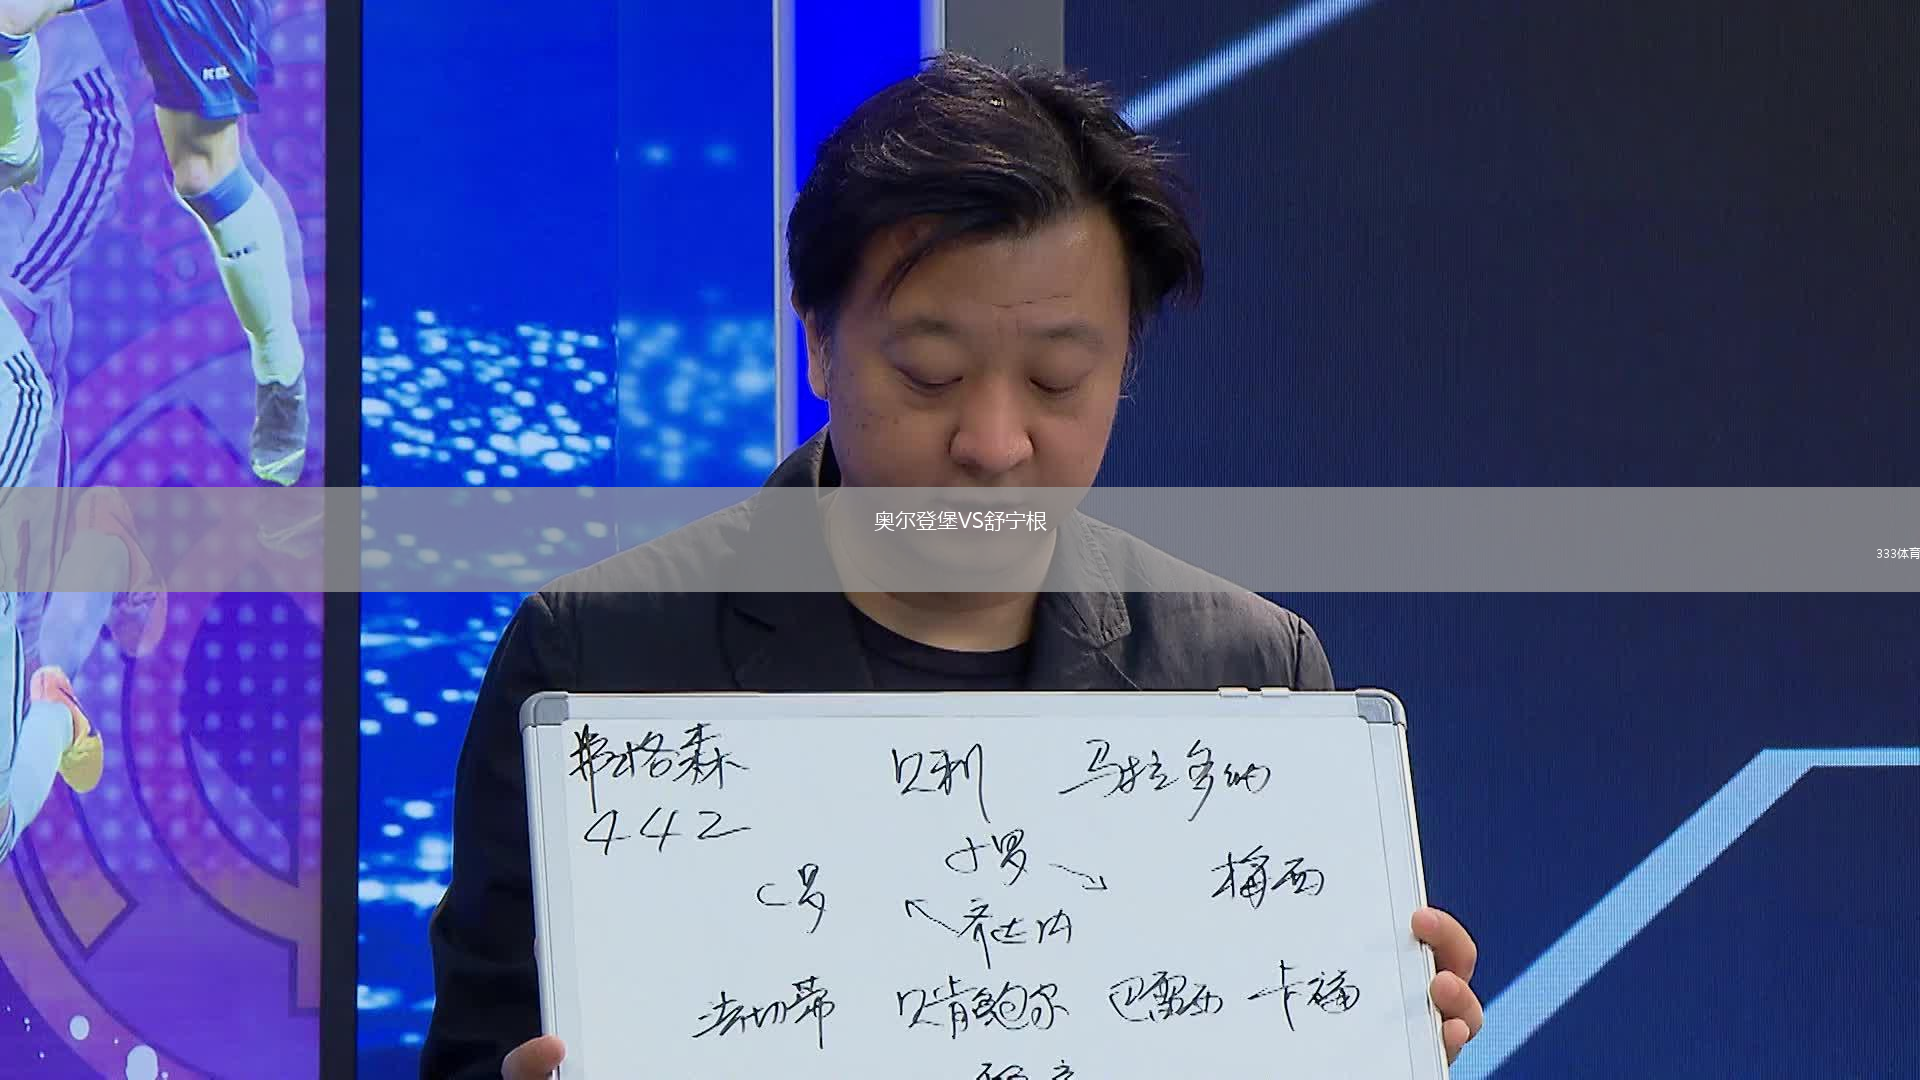 奥尔登堡VS舒宁根
333体育
弗格森 贝利 马拉多纳
442
小罗
C罗 梅西
齐达内
法切蒂 贝肯鲍尔 巴雷西 卡福